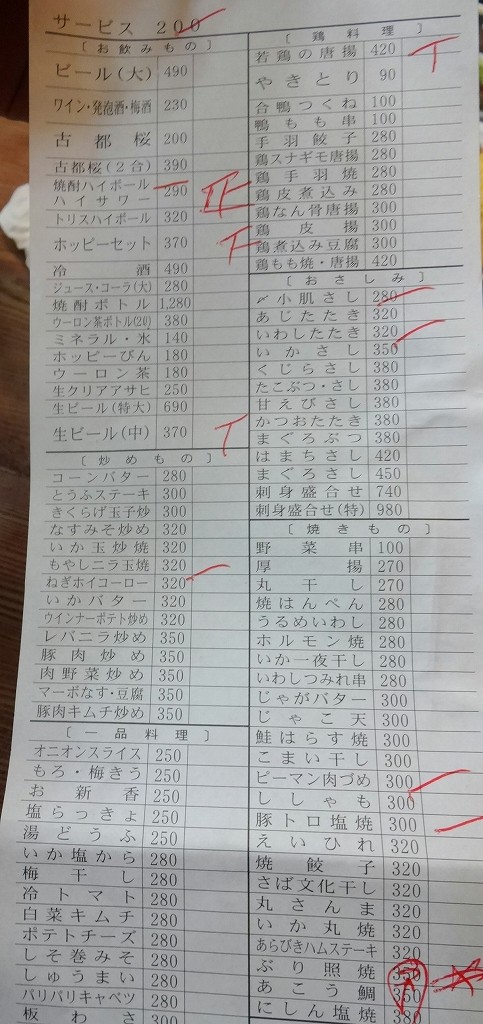 サービス 200
[お飲みもの]
ビール(大) 490
ワイン・発泡酒・梅酒 230
古都桜 200
古都桜(2合) 390
焼酎ハイボール
ハイサワー 290 正
トリスハイボール 320
ホッピーセット 370 下
冷酒 490
ジュース・コーラ(大) 280
焼酎ボトル 1,280
ウーロン茶ボトル(20) 380
ミネラル・氷 140
ホッピーびん 180
ウーロン茶 180
生クリアアサヒ 250
生ビール(特大) 690
生ビール(中) 370 T
[炒めもの]
コーンバター 280
とうふステーキ 300
きくらげ玉子炒 300
なすみそ炒め 320
いか玉炒焼 320
もやしニラ玉焼 320
ねぎホイコーロー 320
いかバター 320
ウインナーポテト炒め 320
レバニラ炒め 350
豚肉炒め 350
肉野菜炒め 350
マーボなす・豆腐 350
豚肉キムチ炒め 350
[一品料理]
オニオンスライス 250
もろ・梅きう 250
お新香 250
塩らっきょ 250
湯どうふ 250
いか塩から 280
梅干し 280
冷トマト 280
白菜キムチ 280
ポテトチーズ 280
しそ巻みそ 280
しゅうまい 280
パリパリキャベツ 280
板わさ 300
[鶏料理]
若鶏の唐揚 420 T
やきとり 90
合鴨つくね 100
鴨もも串 100
手羽餃子 280
鶏スナギモ唐揚 280
鶏手羽焼 280
鶏皮煮込み 280
鶏なん骨唐揚 300
鶏皮揚 300
鶏煮込み豆腐 300
鶏もも焼・唐揚 420
[おさしみ]
小肌さし 280
あじたたき 320
いわしたたき 320
いかさし 350
くじらさし 380
たこぶつ・さし 380
甘えびさし 380
かつおたたき 380
まぐろぶつ 380
はまちさし 420
まぐろさし 450
刺身盛合せ 740
刺身盛合せ(特) 980
[焼きもの]
野菜串 100
厚揚 270
丸干し 270
焼はんぺん 280
うるめいわし 280
ホルモン焼 280
いか一夜干し 280
いわしつみれ串 280
じゃがバター 300
じゃこ天 300
鮭はらす焼 300
こまい干し 300
ピーマン肉づめ 300
ししゃも 300
豚トロ塩焼 300
えいひれ 320
焼餃子 320
さば文化干し 320
丸さんま 320
いか丸焼 320
あらびきハムステーキ 320
ぶり照焼 350
あこう鯛 350
にしん塩焼 380